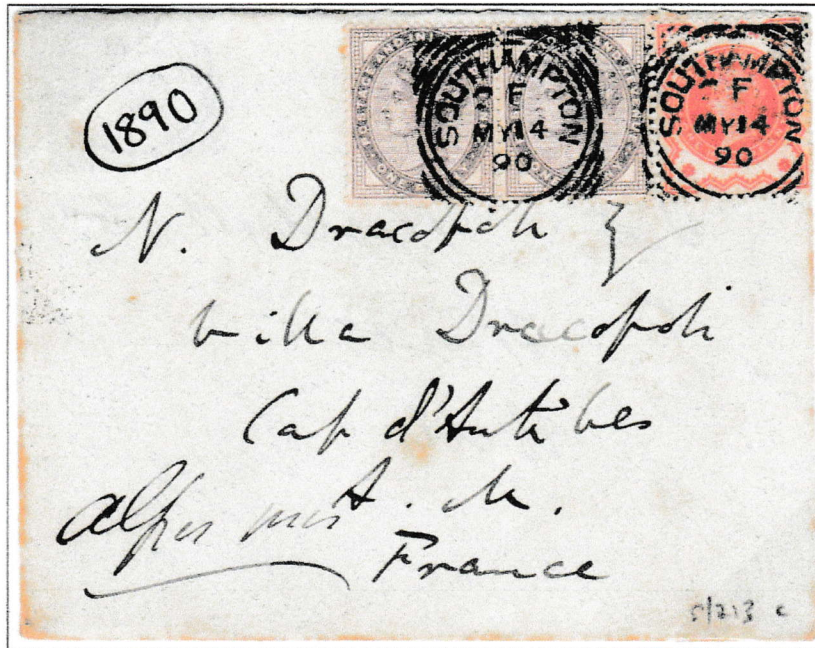 SOUTHAMPTON
F
MY 14
90
SOUTHAMPTON
F
MY 14
90
1890
N. Dracopoli
Villa Dracopoli
Cap d'Antibes
A. M.
Alpes
France
5/213 c